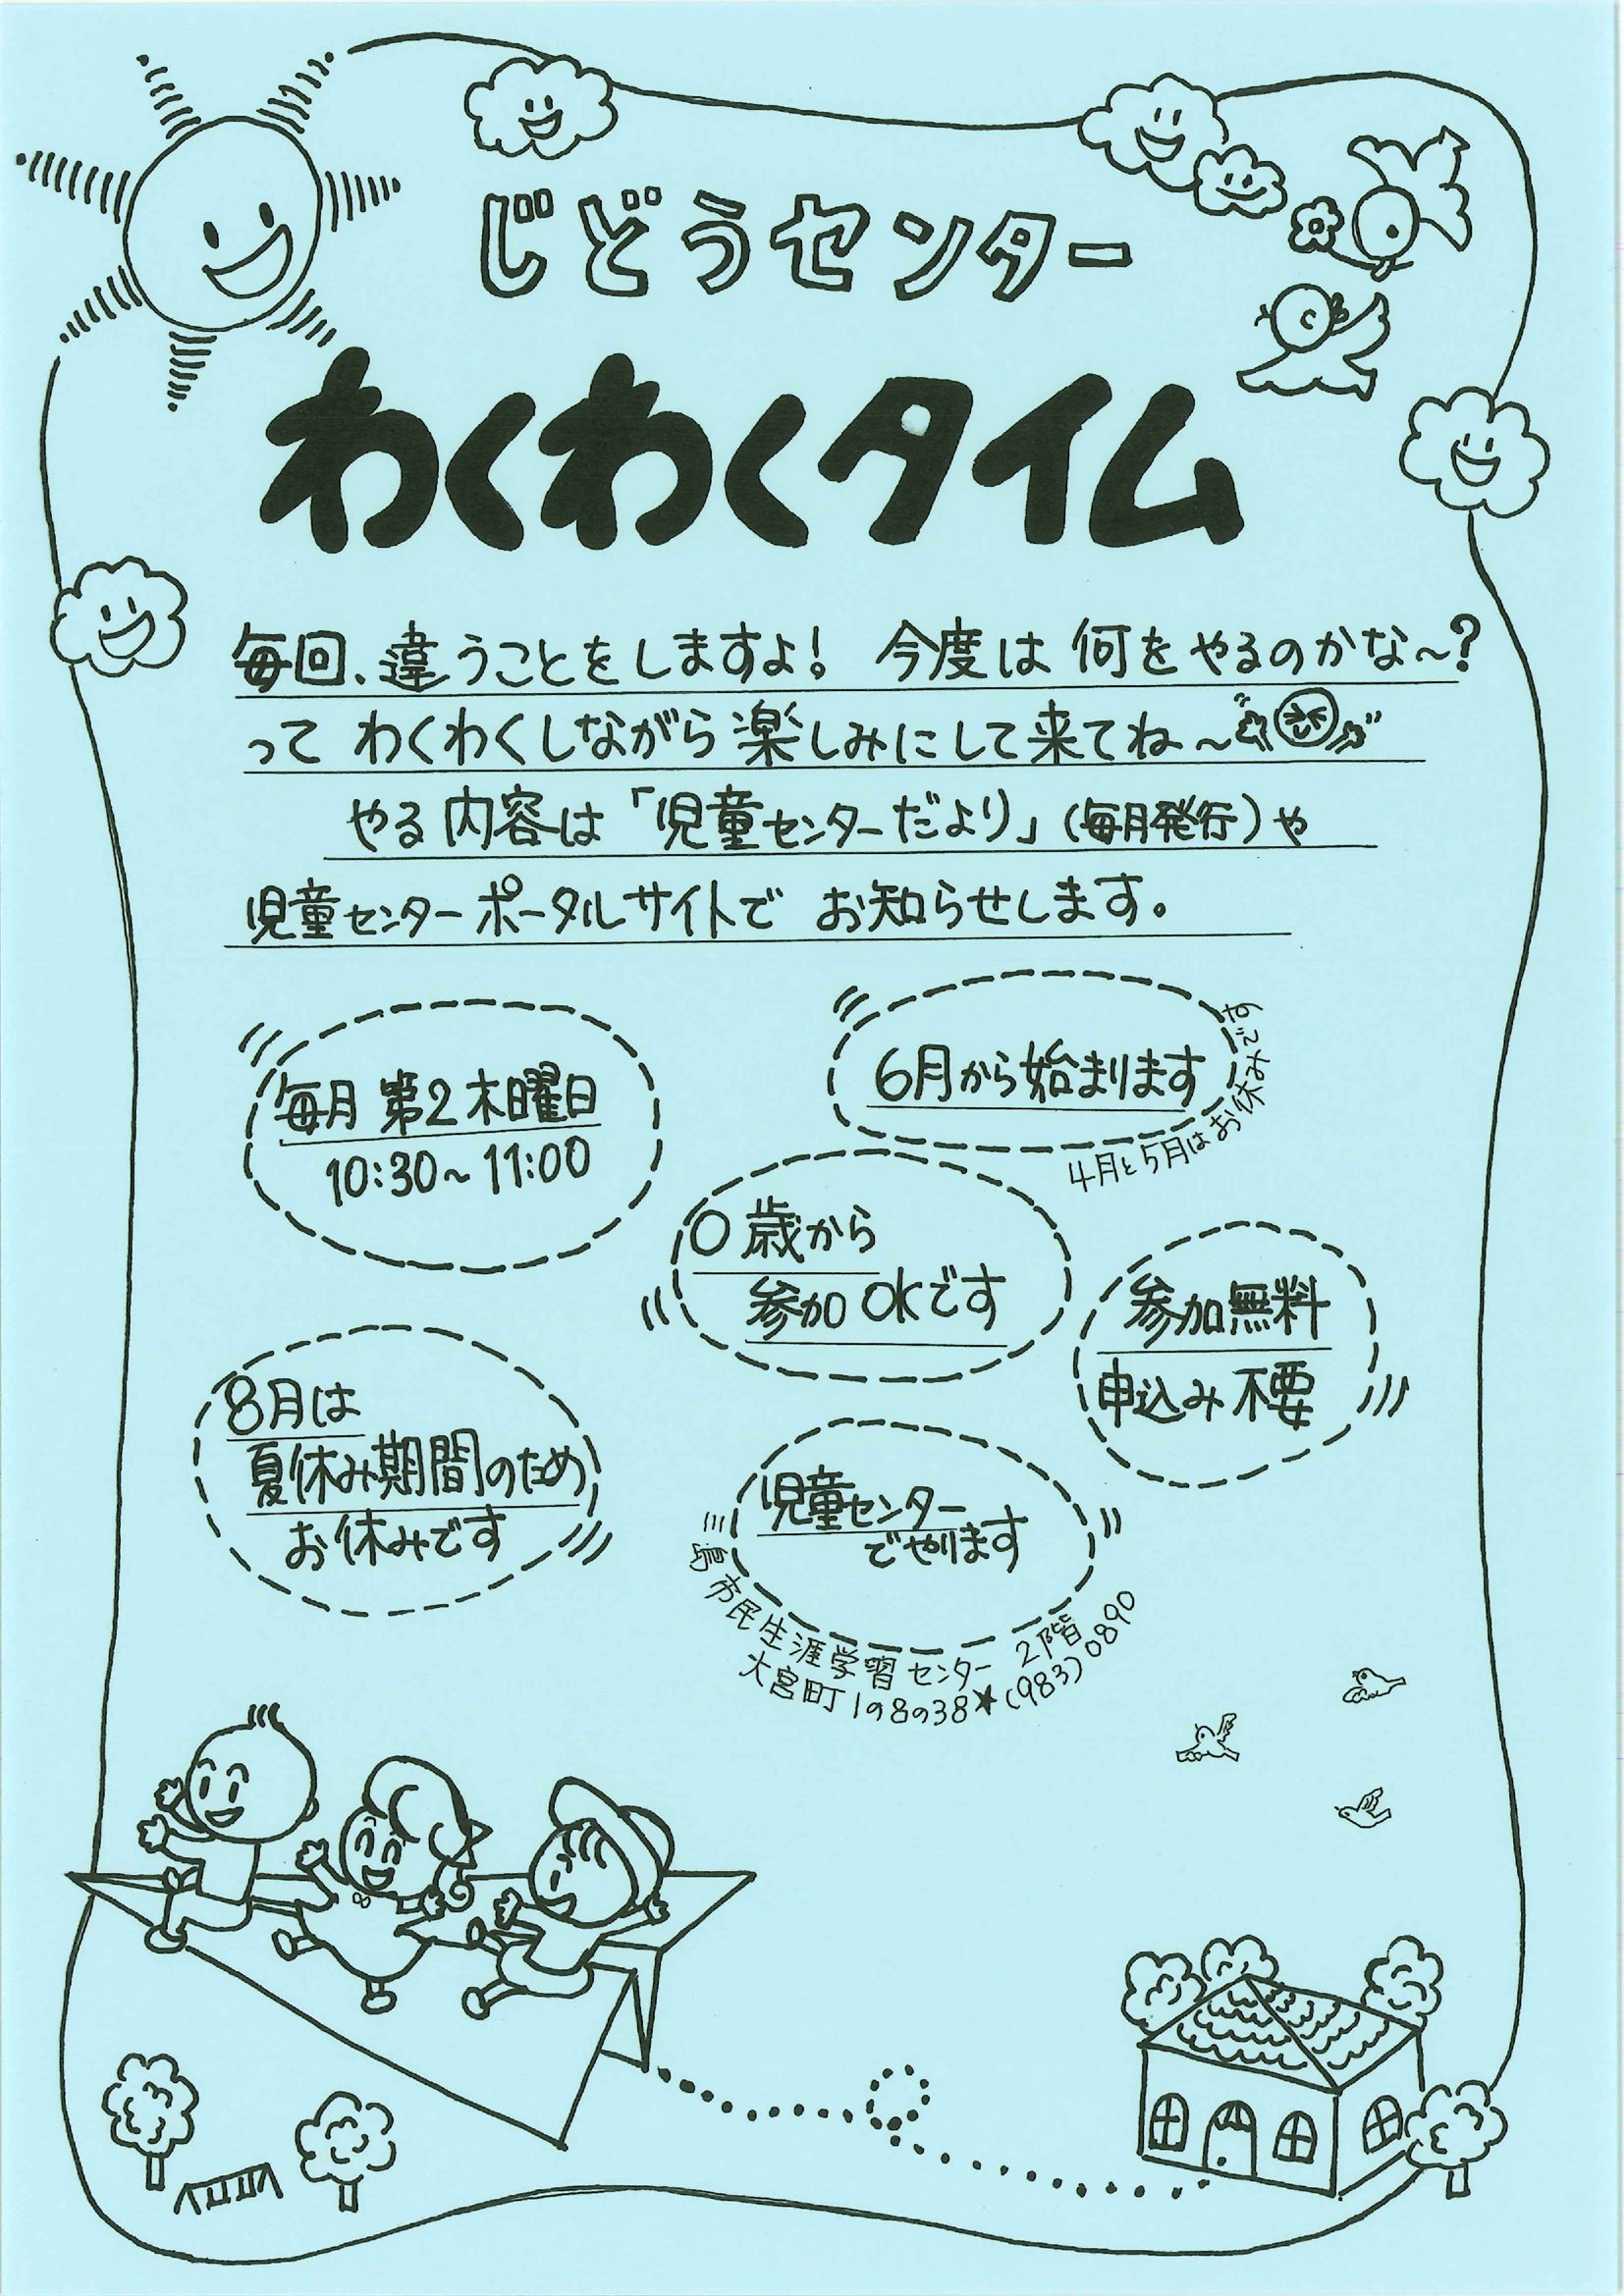 じどうセンター
わくわくタイム
毎回、違うことをしますよ! 今度は 何を やるのかな〜?
って わくわくしながら 楽しみにして来てね〜
やる 内容は 「児童センターだより」(毎月発行)や
児童センター ポータルサイトで お知らせします。
毎月 第2 木曜日
10:30〜11:00
6月から始まります
4月と5月はお休みです
0歳から
参加OKです
参加無料
申込み不要
8月は
夏休み期間のため
お休みです
児童センター
でやります
三島市民生涯学習センター 2階
大宮町1の8の38★(983)0890